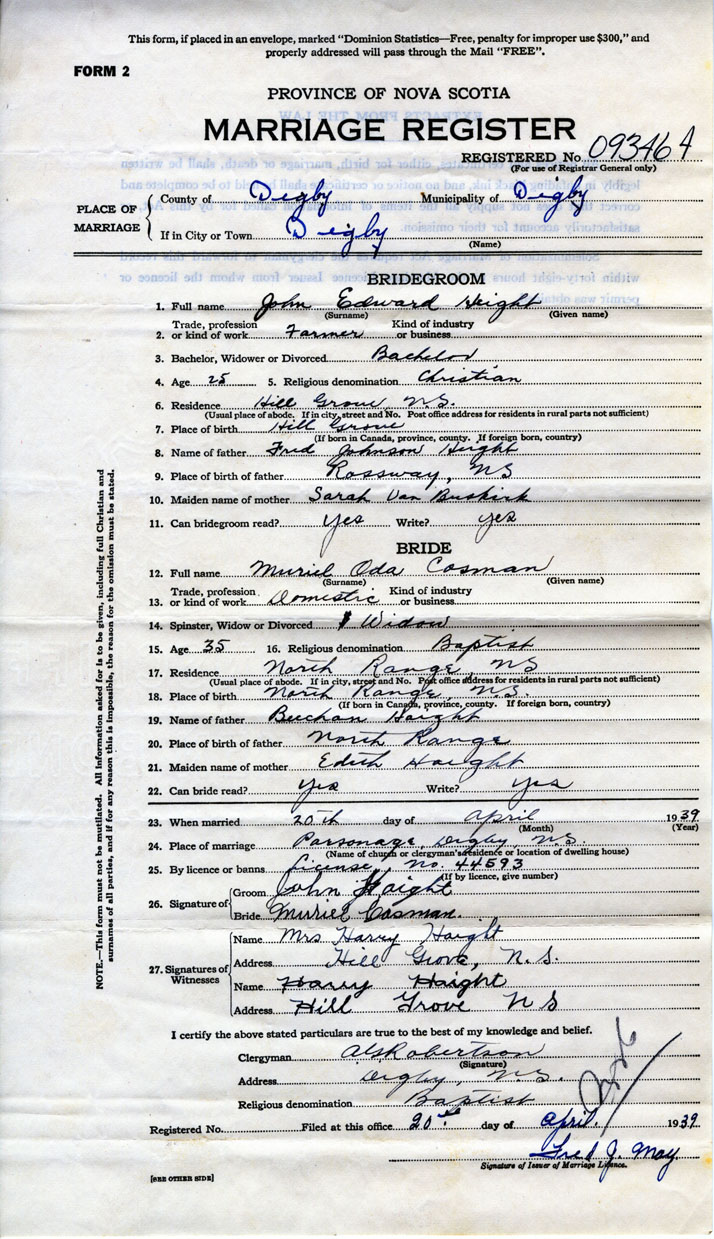 This form, if placed in an envelope, marked "Dominion Statistics—Free, penalty for improper use $300," and
properly addressed will pass through the Mail "FREE".
FORM 2
PROVINCE OF NOVA SCOTIA
MARRIAGE REGISTER
REGISTERED No. 093464
(For use of Registrar General only)
PLACE OF MARRIAGE
County of Digby Municipality of Digby
If in City or Town Digby
(Name)
BRIDEGROOM
1. Full name John Edward Height
(Surname) (Given name)
2. Trade, profession or kind of work Farmer Kind of industry or business
3. Bachelor, Widower or Divorced Bachelor
4. Age 25 5. Religious denomination Christian
6. Residence Hill Grove N.S.
(Usual place of abode. If in city, street and No. Post office address for residents in rural parts not sufficient)
7. Place of birth Hill Grove
(If born in Canada, province, county. If foreign born, country)
8. Name of father Fred Johnson Height
9. Place of birth of father Rossway, NS
10. Maiden name of mother Sarah Van Buskirk
11. Can bridegroom read? Yes Write? yes
BRIDE
12. Full name Muriel Oda Cosman
(Surname) (Given name)
13. Trade, profession or kind of work Domestic Kind of industry or business
14. Spinster, Widow or Divorced Widow
15. Age 35 16. Religious denomination Baptist
17. Residence North Range, NS
(Usual place of abode. If in city, street and No. Post office address for residents in rural parts not sufficient)
18. Place of birth North Range, N.S.
(If born in Canada, province, county. If foreign born, country)
19. Name of father Buchan Haight
20. Place of birth of father North Range
21. Maiden name of mother Edith Haight
22. Can bride read? Yes Write? Yes
23. When married 20th day of April 1939
(Month) (Year)
24. Place of marriage Parsonage, Digby, N.S.
(Name of church or clergyman's residence or location of dwelling house)
25. By licence or banns License, No. 44593
(If by licence, give number)
26. Signature of
Groom John Haight
Bride Muriel Cosman.
27. Signatures of Witnesses
Name Mrs Harry Haight
Address Hill Grove, N.S.
Name Harry Haight
Address Hill Grove N S
I certify the above stated particulars are true to the best of my knowledge and belief.
Clergyman Robertson
(Signature)
Address Digby, N.S.
Religious denomination Baptist
Registered No. Filed at this office 20th day of April 1939
Fred J. May
Signature of Issuer of Marriage Licence.
[SEE OTHER SIDE]
NOTE.—This form must not be mutilated. All information asked for is to be given, including full Christian and
surnames of all parties, and if for any reason this is impossible, the reason for the omission must be stated.